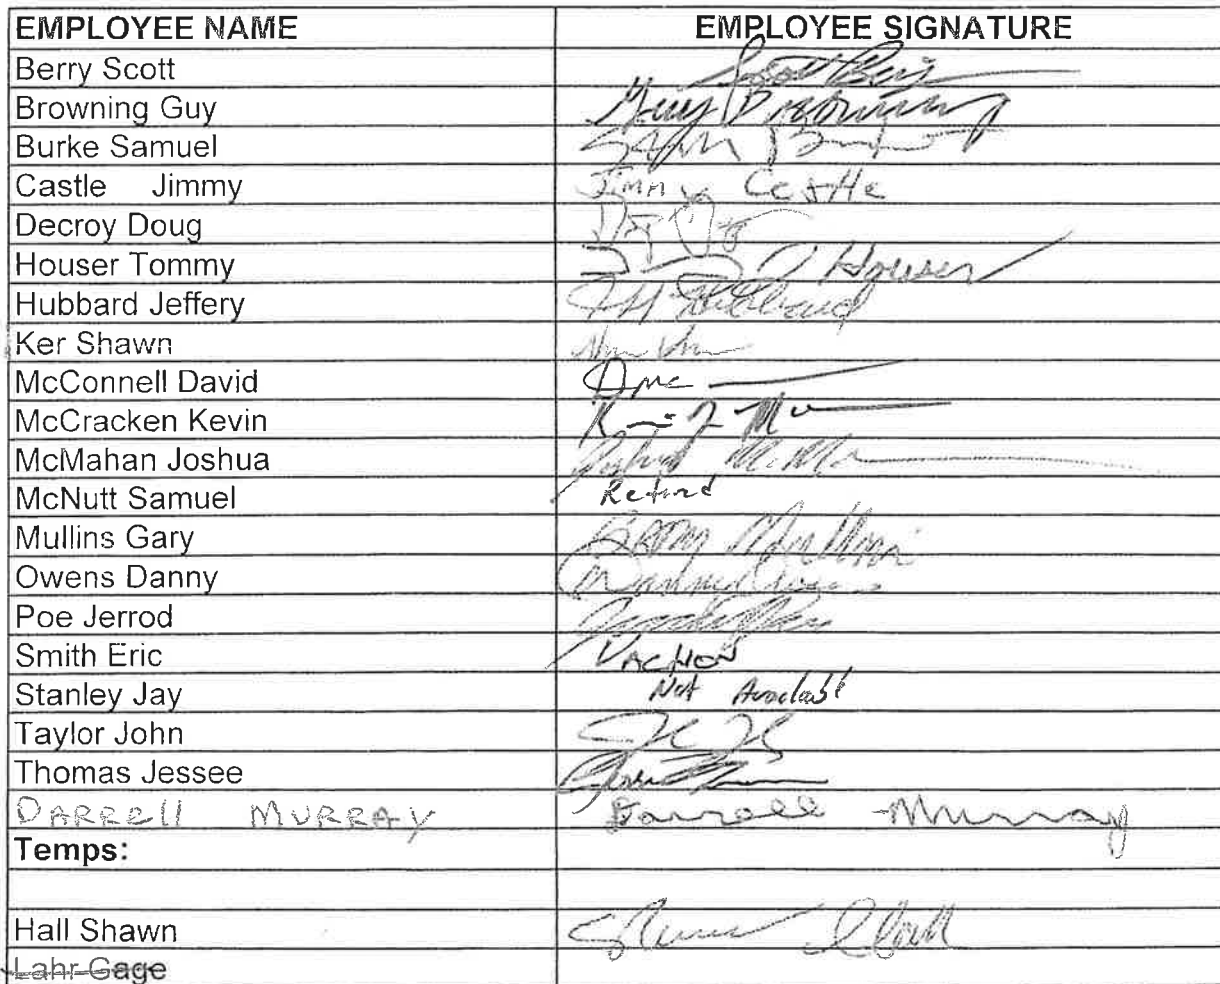 EMPLOYEE NAME EMPLOYEE SIGNATURE
Berry Scott Scott Berry
Browning Guy Guy Browning
Burke Samuel
Castle Jimmy Jimmy Castle
Decroy Doug
Houser Tommy Houser
Hubbard Jeffery Jeff Hubbard
Ker Shawn
McConnell David Dmc
McCracken Kevin
McMahan Joshua Joshua
McNutt Samuel Retired
Mullins Gary Gary Mullins
Owens Danny Danny Owens
Poe Jerrod
Smith Eric
Stanley Jay Not
Taylor John
Thomas Jessee
DARRell MURRAY Darrell Murray
Temps:
Hall Shawn Shawn Hall
Lahr Gage